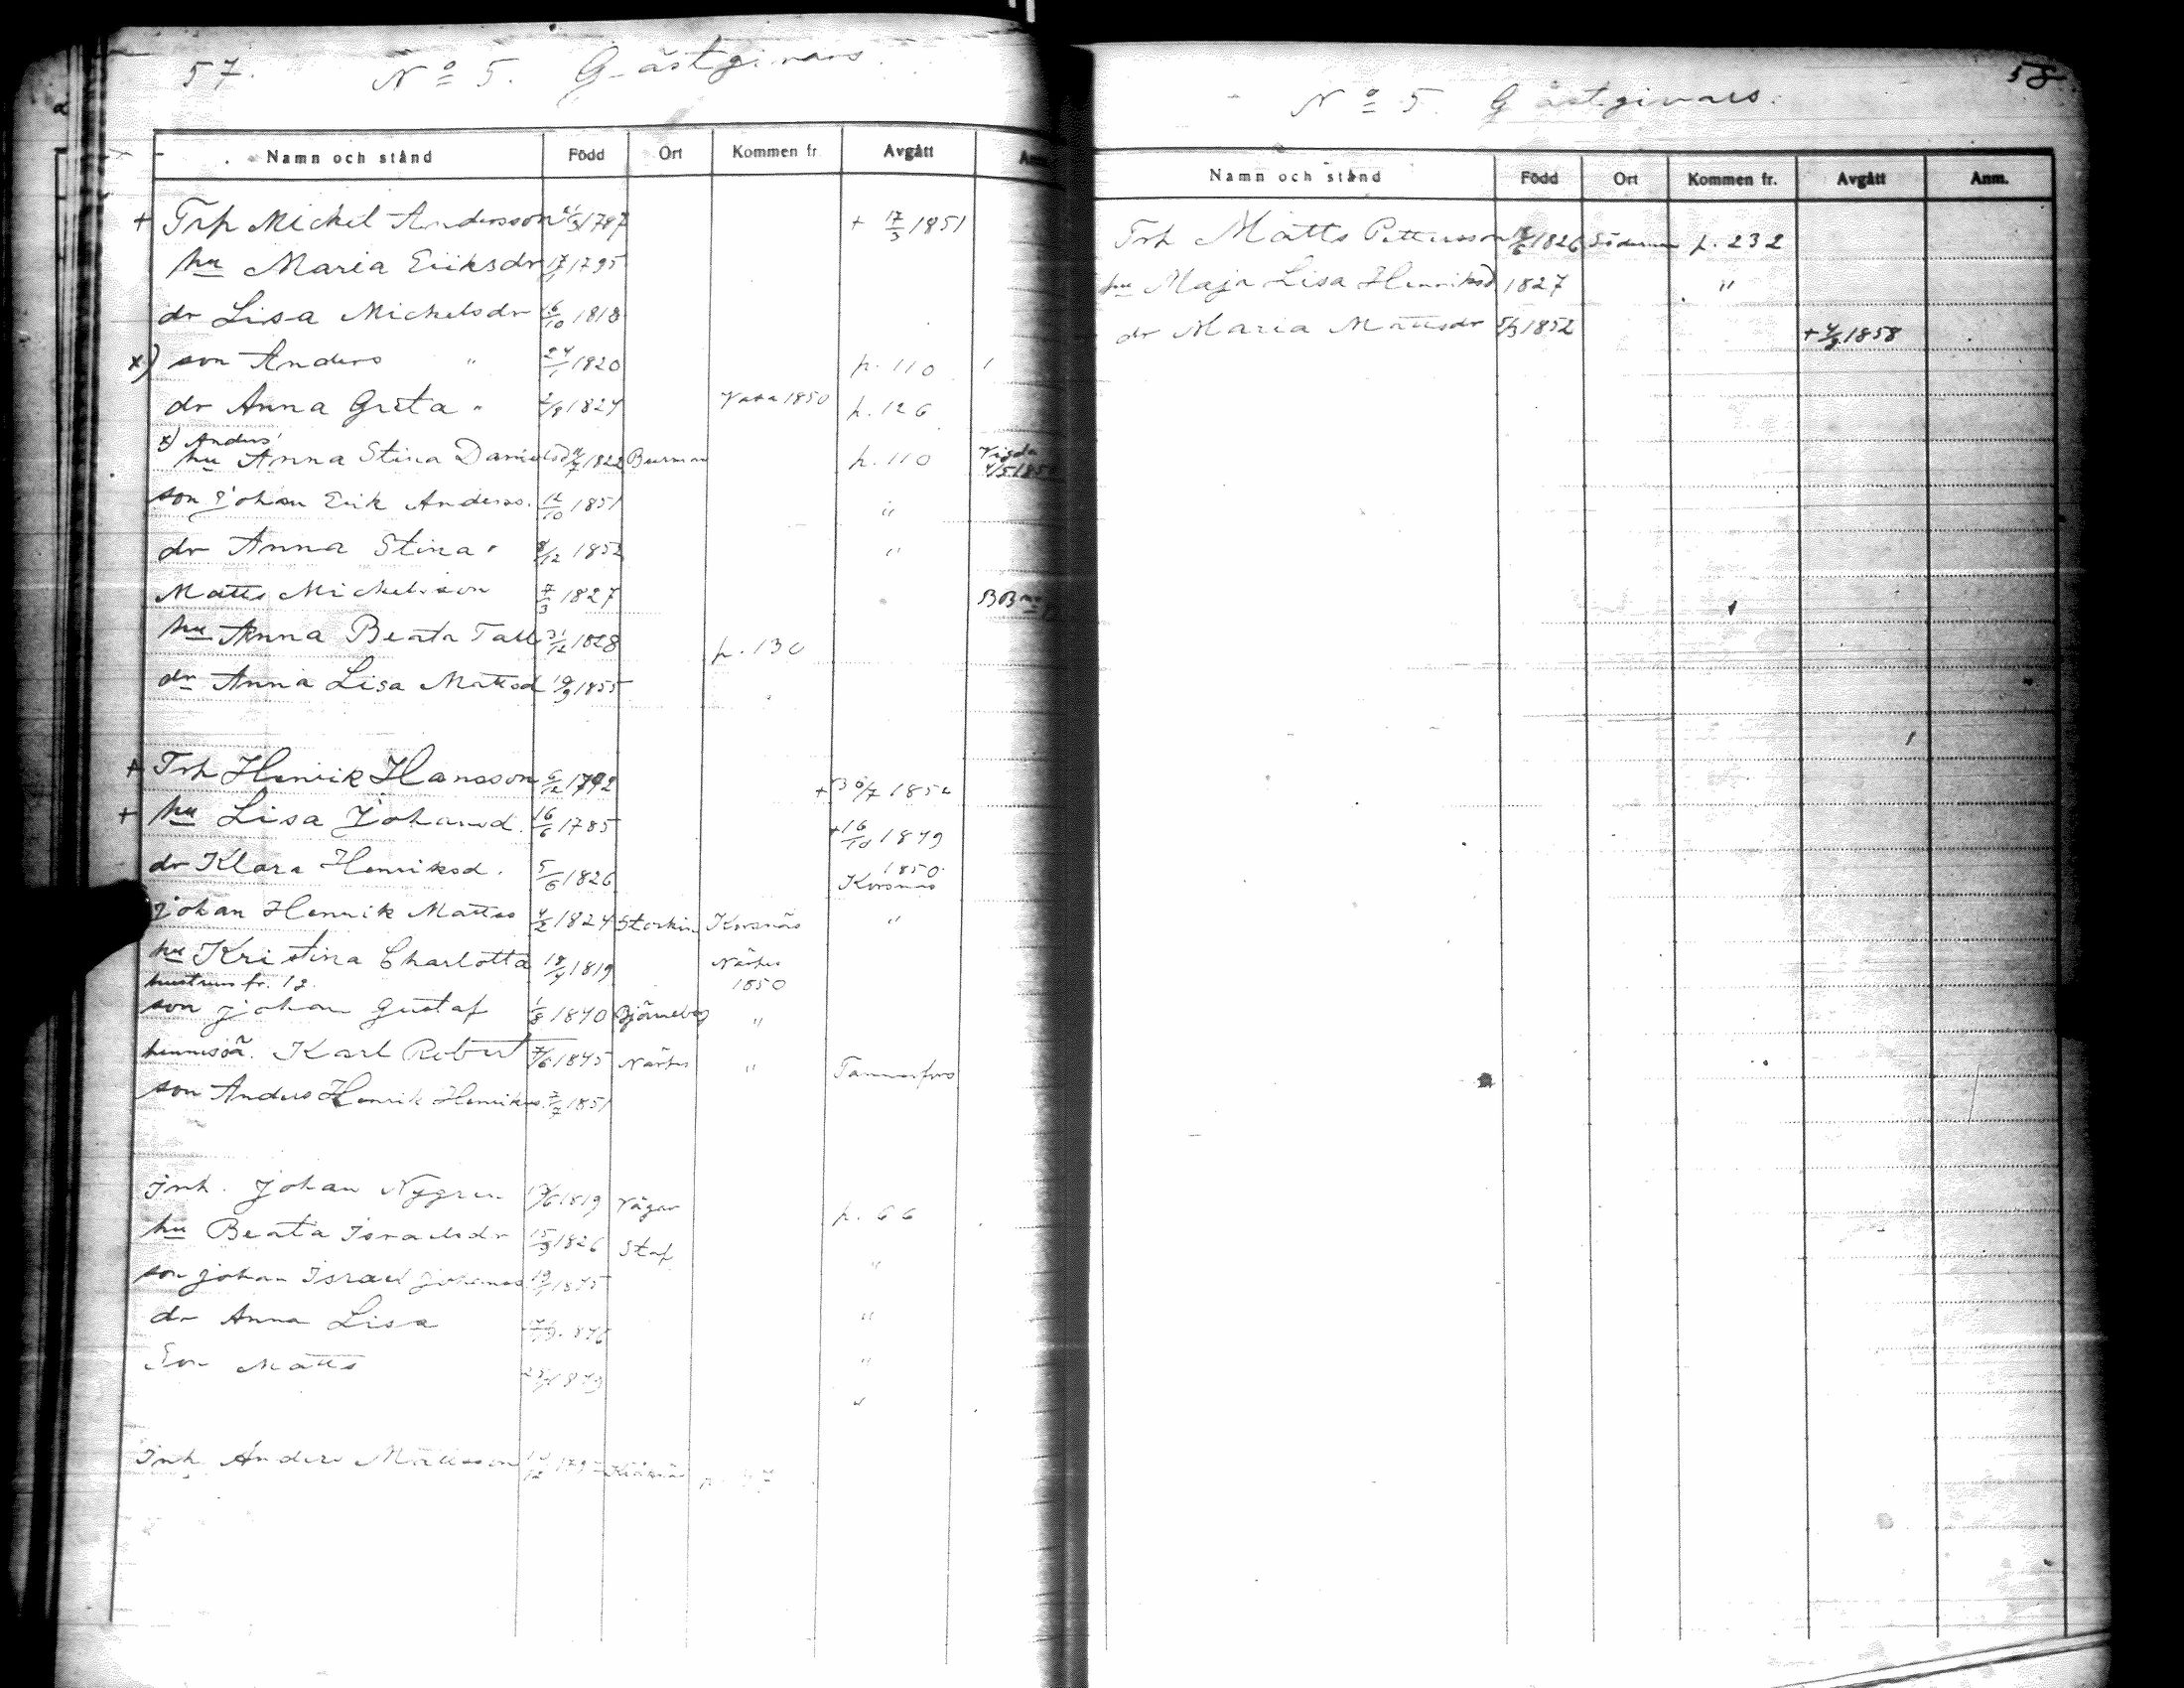 57. No 5. Gästgivars
Namn och stånd Född Ort Kommen fr. Avgått Anm.
+ Trp Mickel Andersson 1787 + 17/3 1851
hu Maria Eriksdr 17/1 1795
dr Lisa Mickelsdr 16/10 1818
x) son Anders " 24/1 1820 p. 110
dr Anna Greta " 2/8 1824 Vasa 1850 p. 126
x) Anders'
hu Anna Stina Danielsd 1822 Burman p. 110 Vigda
son Johan Erik Anderss. 12/10 1851 "
dr Anna Stina " 8/12 1852 "
Matts Mickelsson 7/3 1827
hu Anna Beata Tall 31/12 1828 p. 130
dr Anna Lisa Mattsd 19/9 1855
+ Trp Henrik Hansson 6/12 1792 + 30/7 1852
+ hu Lisa Johansd. 16/6 1785 + 16/10 1849
dr Klara Henriksd. 5/6 1826 1850 Korsnäs
Johan Henrik Mattss 4/2 1824 Korsnäs "
hu Kristina Charlotta 18/4 1819 Närpes 1850
hustrun fr. 1 g.
son Johan Gustaf 1/8 1840 Björneborg "
hennes oä. Karl Robert 7/6 1845 Närpes " Tammerfors
son Anders Henrik Henrikss 7/7 1851
Inh. Johan Nygren 1819 Vågar p. 66
hu Beata Israelsdr 15/9 1826 Staf "
son Johan Israel Johanss 1845 "
dr Anna Lisa "
Son Matts "
Inh. Anders Mattsson
58
No 5. Gästgivars.
Namn och stånd Född Ort Kommen fr. Avgått Anm.
Trp Matts Pettersson 1826 p. 232
hu Maja Lisa Henriksd 1827 "
dr Maria Mattsdr 1852 + 1858